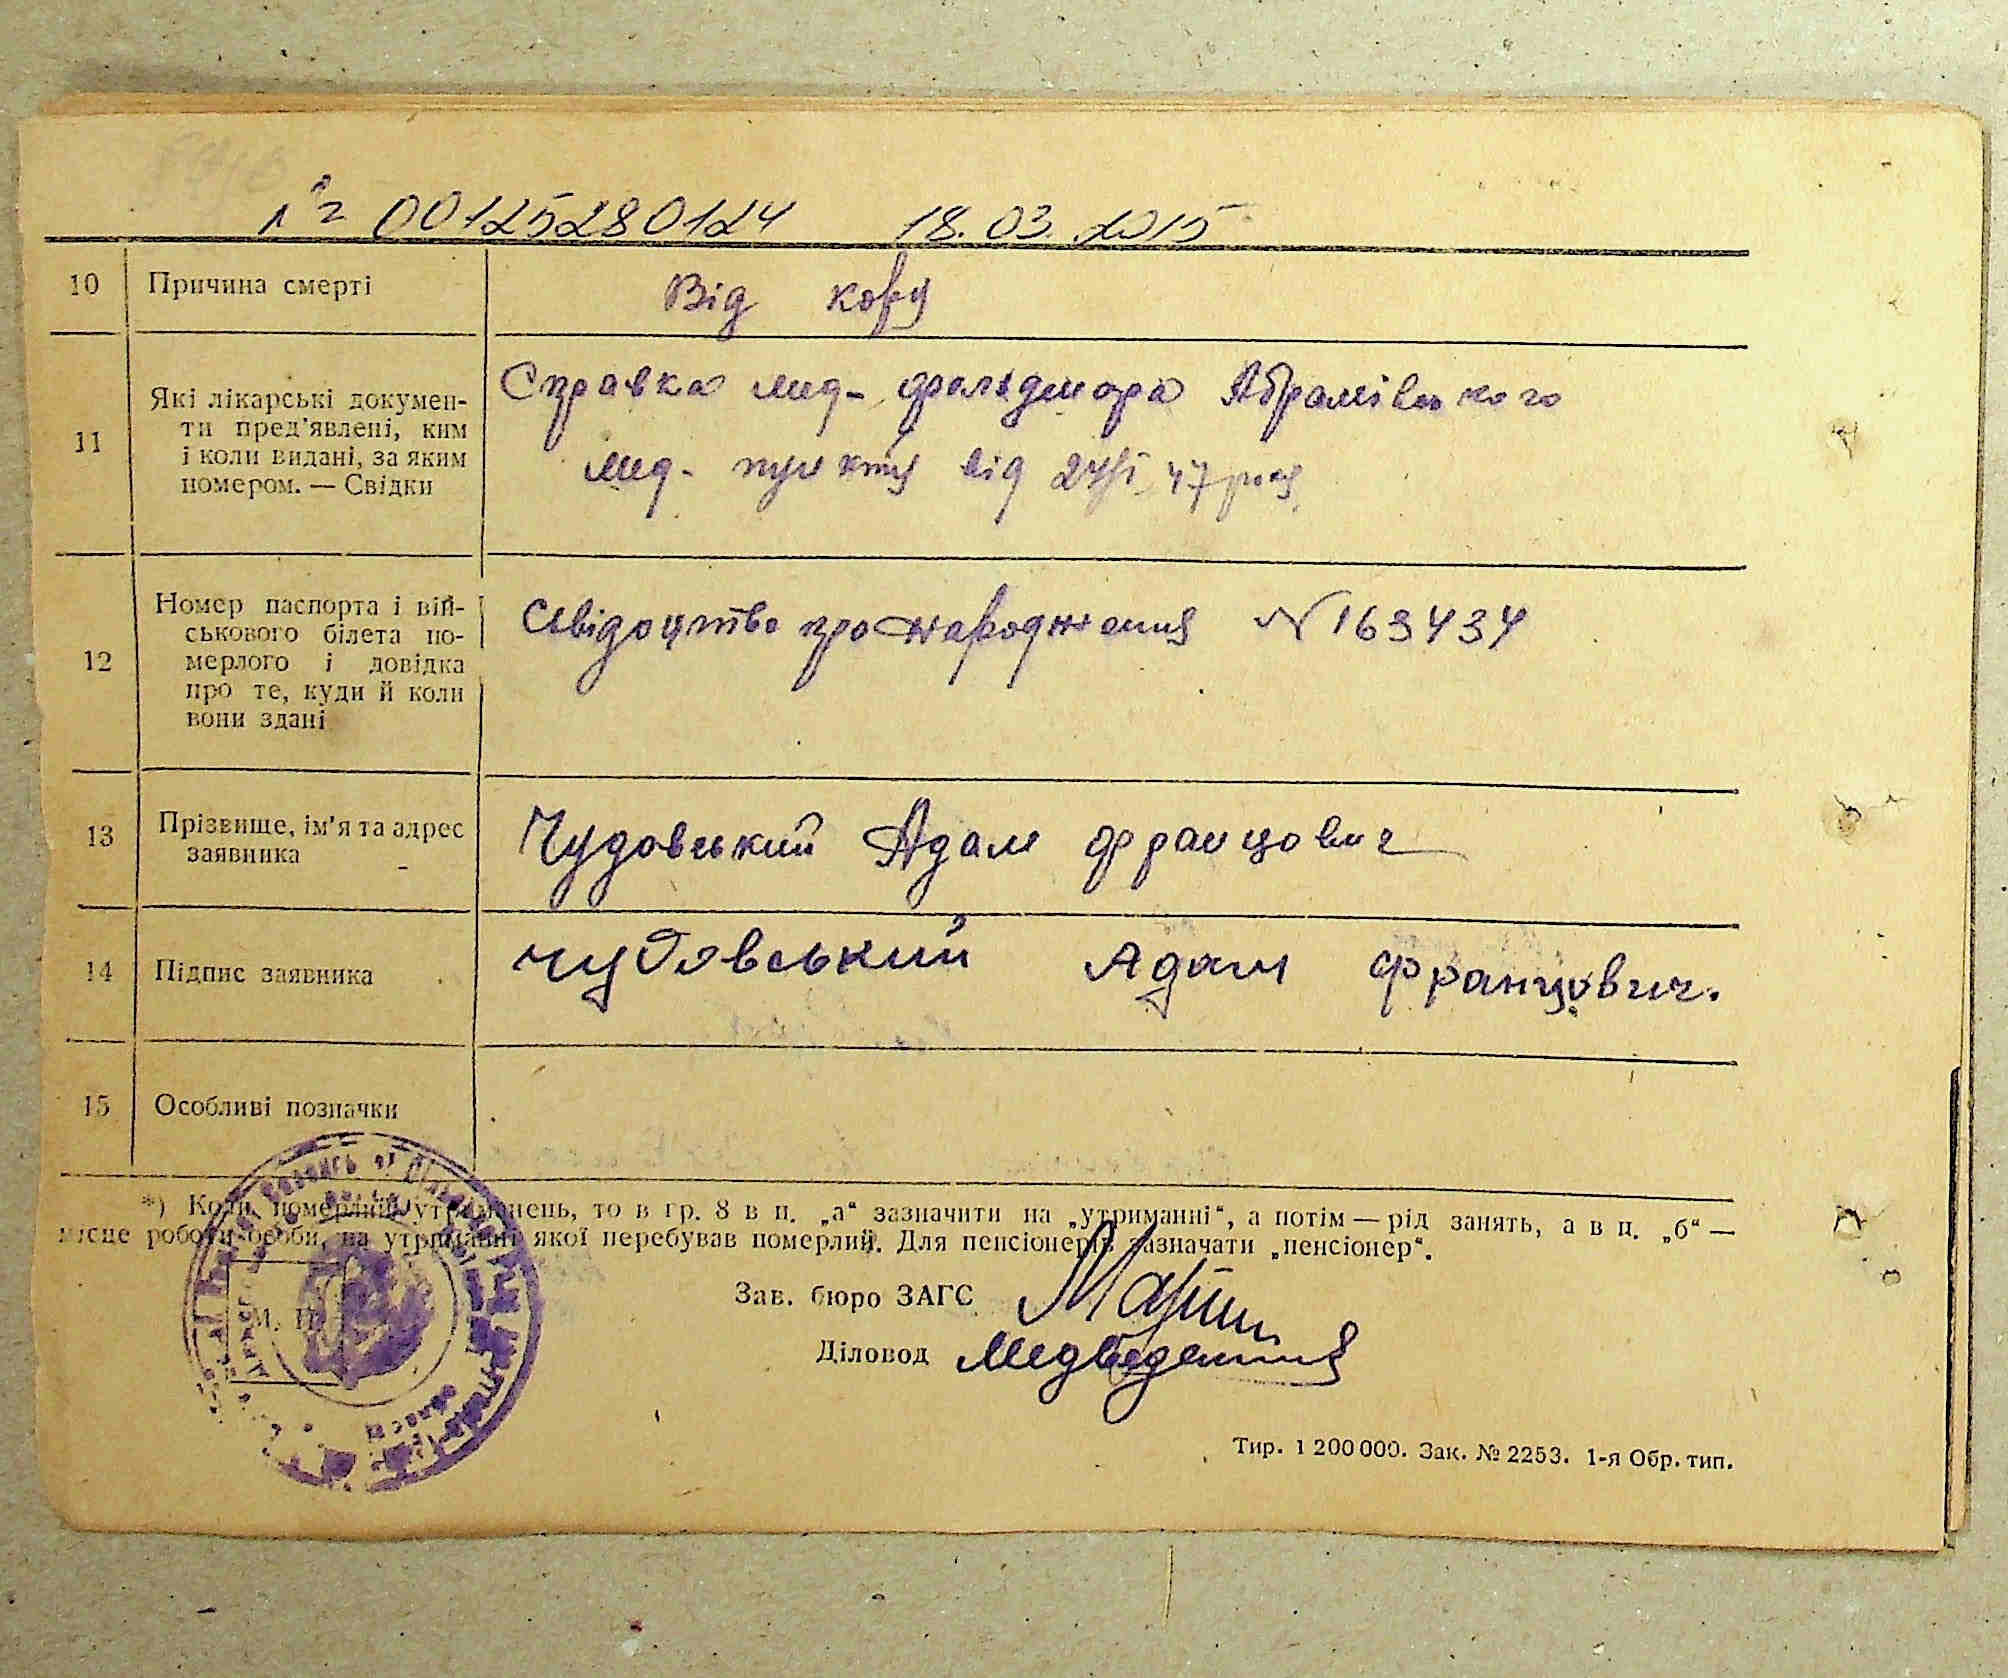 № 00125280124 18.03.2015
10 Причина смерті Від кору
11 Які лікарські докумен-
ти пред'явлені, ким
і коли видані, за яким
номером. — Свідки
Справка мед- фельдшора Абрамівського
мед- пункту від 24/VI 47 року
12 Номер паспорта і вій-
ськового білета по-
мерлого і довідка
про те, куди й коли
вони здані
Свідоцтво про народження №163434
13 Прізвище, ім'я та адрес
заявника
Чудовський Адам Францович
14 Підпис заявника Чудовський Адам Францович.
15 Особливі позначки
*) Коли померлий утриманець, то в гр. 8 в п. „а“ зазначити на „утриманні“, а потім — рід занять, а в п. „б“ —
місце роботи особи, на утриманні якої перебував померлий. Для пенсіонерів зазначати „пенсіонер“.
М. П.
Зав. бюро ЗАГС
Діловод
Тир. 1 200 000. Зак. № 2253. 1-я Обр. тип.